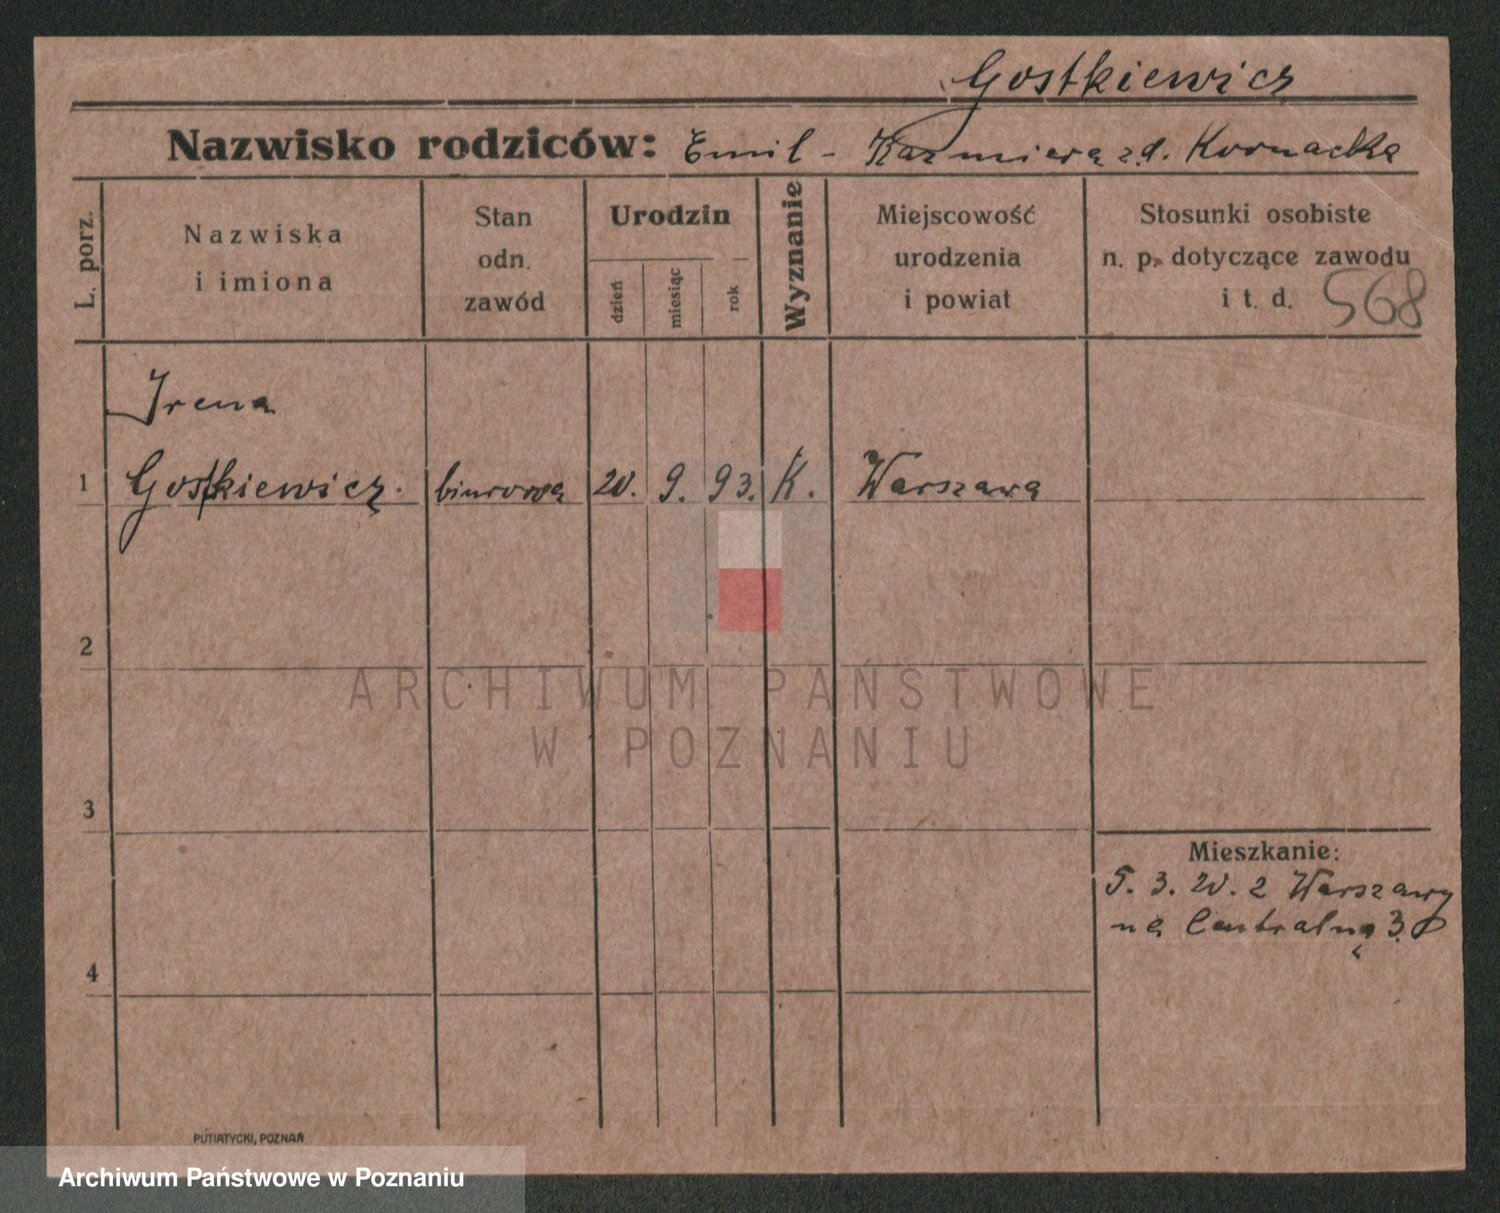 Gostkiewicz
Nazwisko rodziców: Emil - Kazmiera z d. Kornacka
L. porz.
Nazwiska
i imiona
Stan
odn.
zawód
Urodzin
dzień
miesiąc
rok
Wyznanie
Miejscowość
urodzenia
i powiat
Stosunki osobiste
n. p. dotyczące zawodu
i t. d. 568
Irena
1 Gostkiewicz. biurowa 20. 9. 93. K. Warszawa
2
ARCHIWUM PAŃSTWOWE
W POZNANIU
3
Mieszkanie:
5. 3. 20. z Warszawy
na Centralną 3.
4
PUTIATYCKI, POZNAŃ
Archiwum Państwowe w Poznaniu